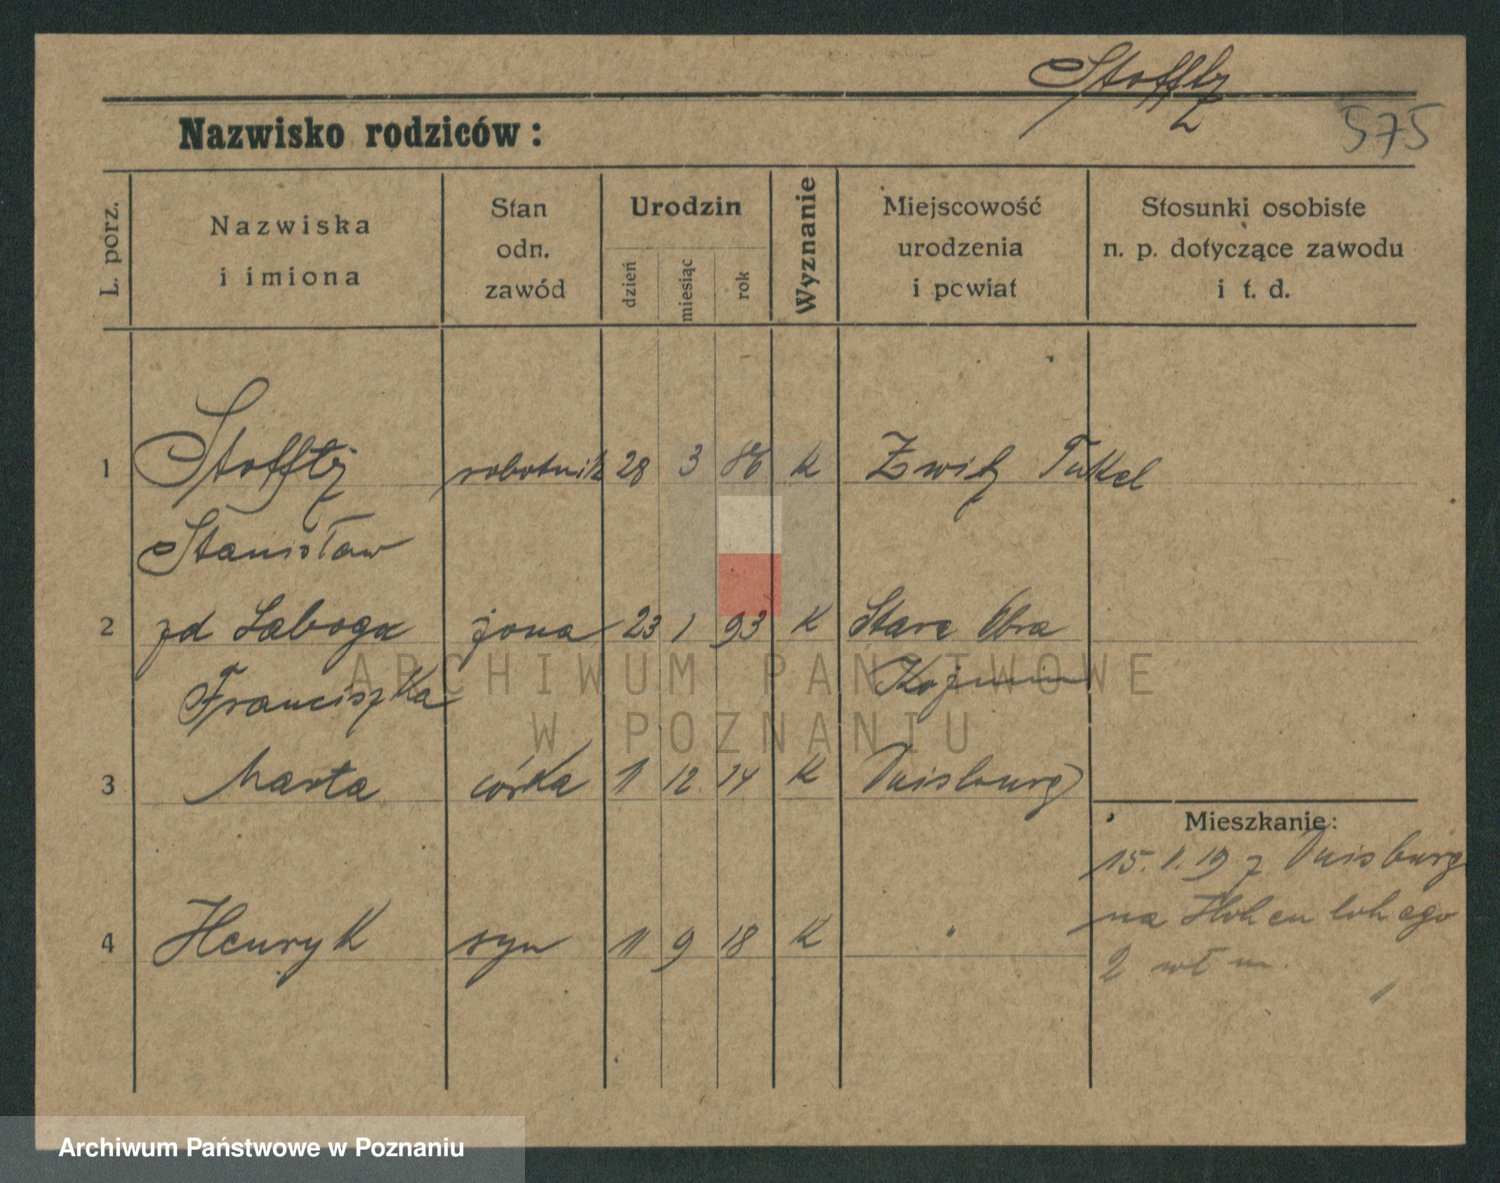 Stofftz
Nazwisko rodziców:
575
L. porz.
Nazwiska
i imiona
Stan
odn.
zawód
Urodzin
dzień
miesiąc
rok
Wyznanie
Miejscowość
urodzenia
i powiat
Stosunki osobiste
n. p. dotyczące zawodu
i t. d.
1 robotnik 28 3 86 K Tukel
Stanisław
2 zd Łaboga żona 23 1 93 K Stara Obra
Franciszka Koźmin
3 Marta córka 11 12 14 K Duisburg
Mieszkanie:
15. 1. 19 z Duisburg
4 Henryk syn 11 9 18 K "
na Hohenlohego
2 wł m.
ARCHIWUM PAŃSTWOWE
W POZNANIU
Archiwum Państwowe w Poznaniu